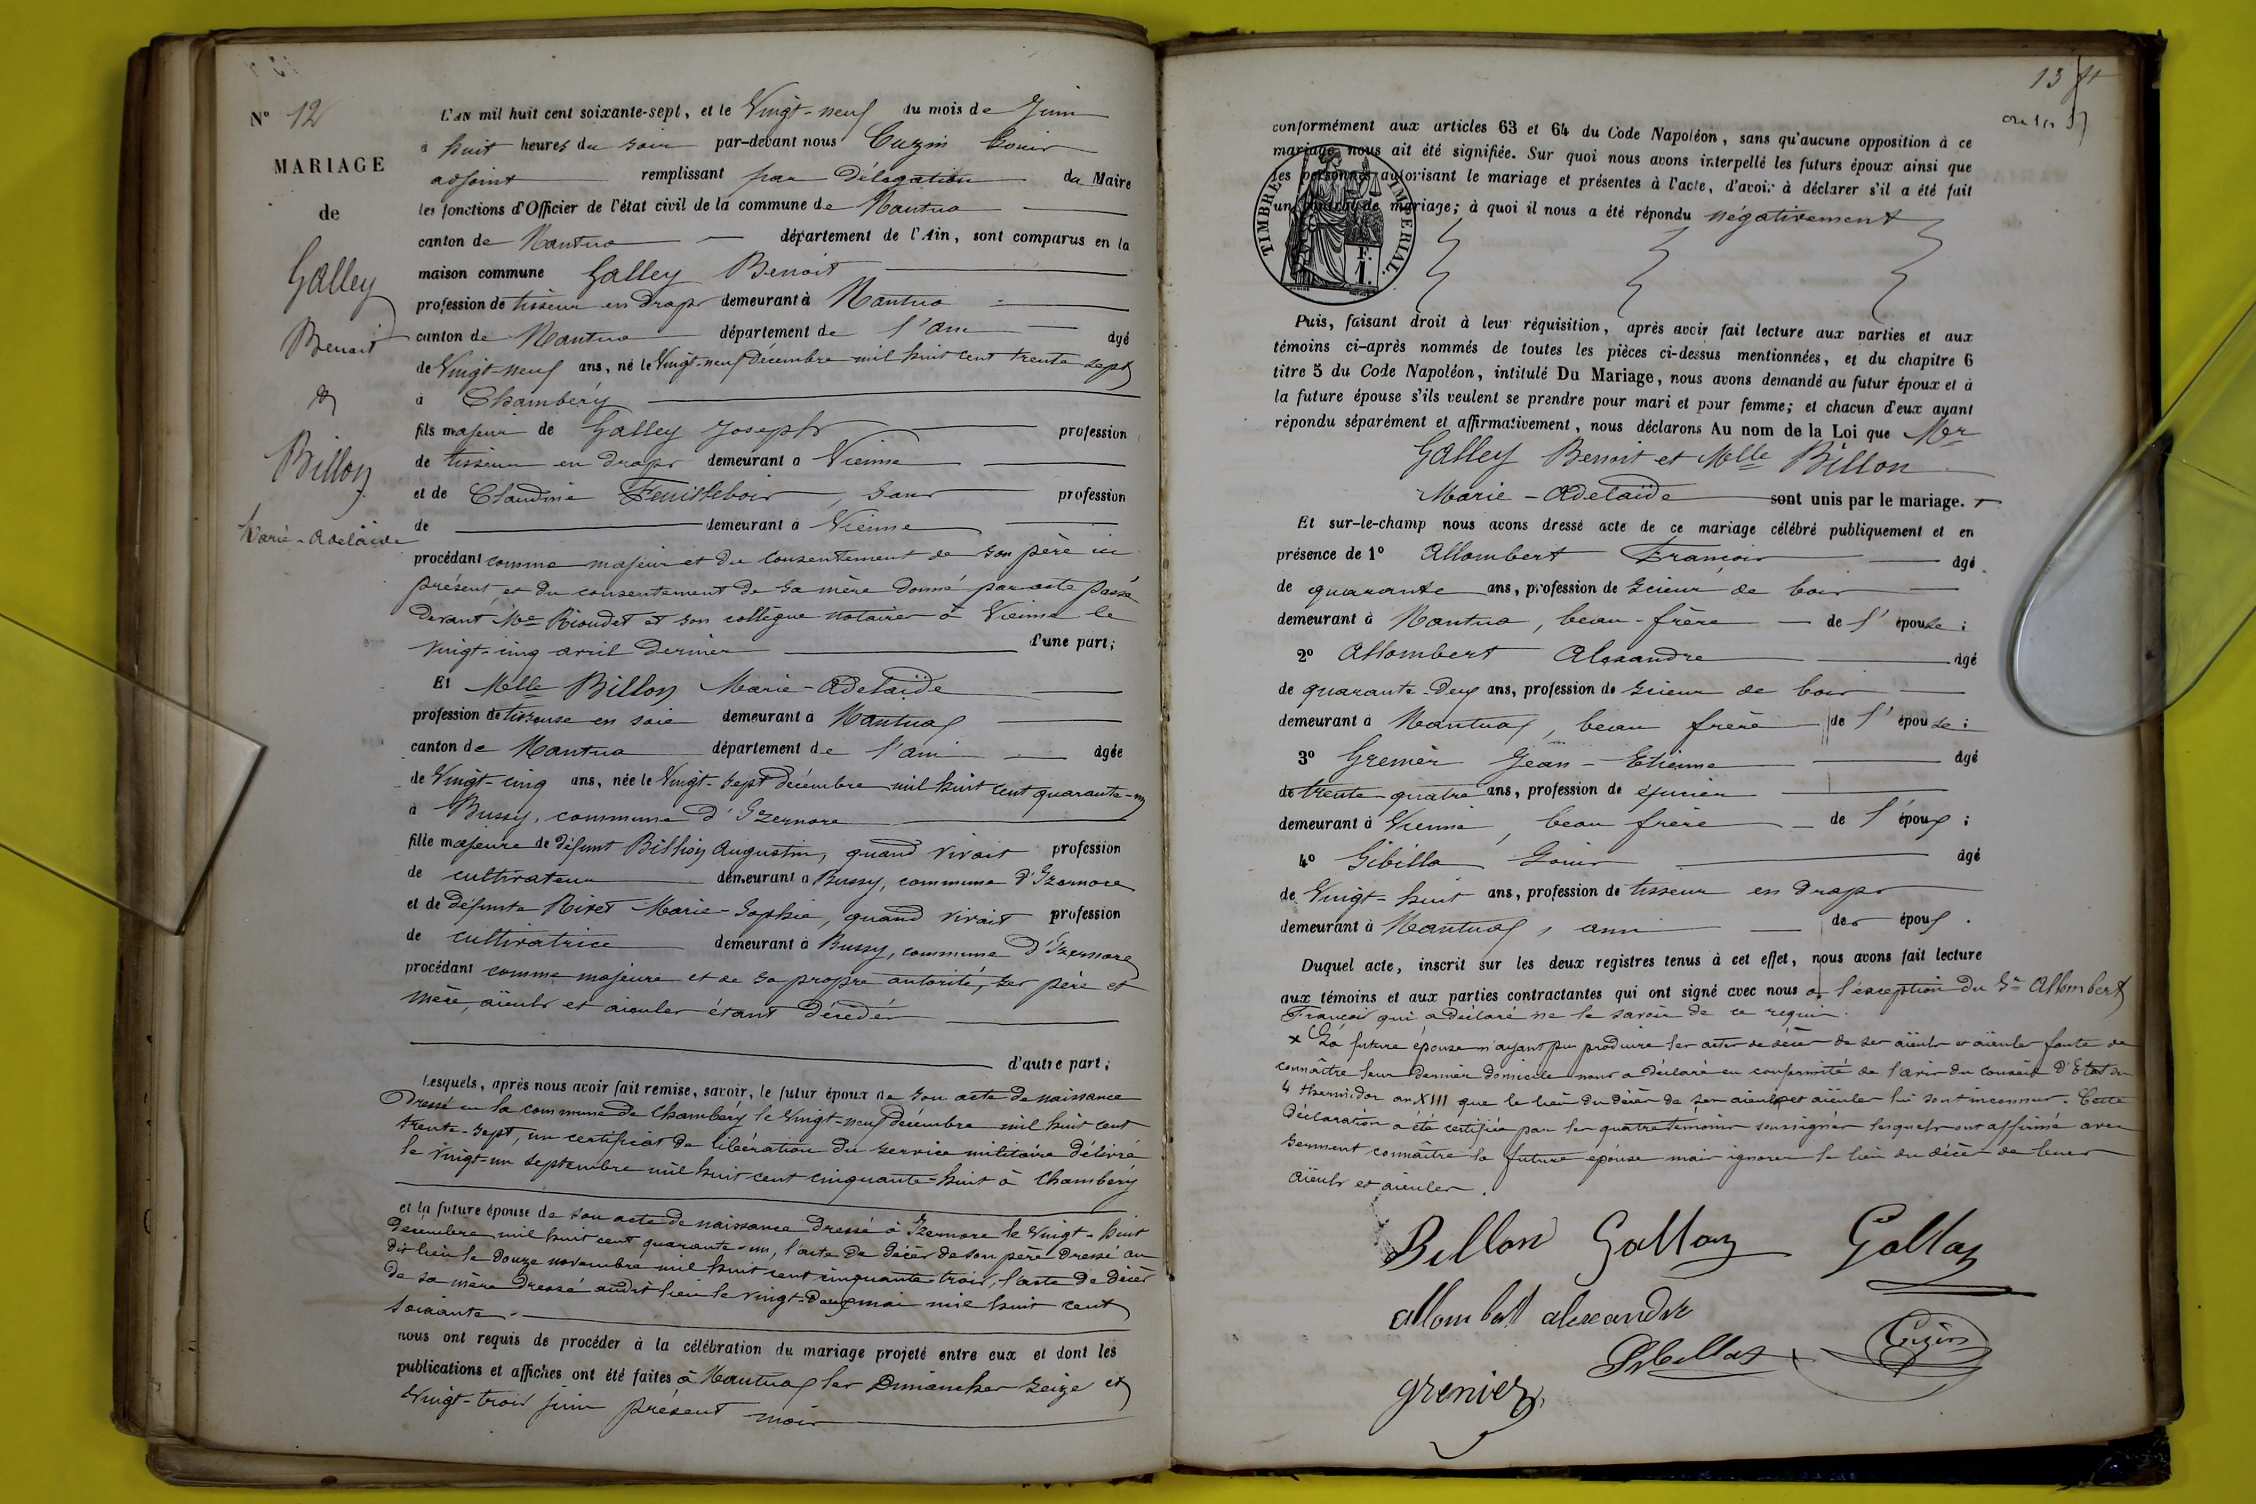 N° 12
MARIAGE
de
Galley
Benoit
&
Billon
Marie-Adelaïde
L'AN mil huit cent soixante-sept, et le Vingt-neuf du mois de Juin
à huit heures du soir par-devant nous Cuzin Louis
adjoint remplissant par Délégation du Maire
les fonctions d'Officier de l'état civil de la commune de Nantua
canton de Nantua département de l'Ain, sont comparus en la
maison commune Galley Benoit
profession de tisseur en draps demeurant à Nantua
canton de Nantua département de l'ain âgé
de Vingt-neuf ans, né le Vingt-neuf Décembre mil huit cent trente sept
à Chambéry
fils majeur de Galley Joseph profession
de tisseur en draps demeurant à Vienne
et de Claudine Feuillebois, sans profession
de demeurant à Vienne
procédant comme majeur et du consentement de son père ici
présent, et du consentement de sa mère donné par acte passé
devant Me Rioudet et son collègue notaires à Vienne le
vingt-cinq avril dernier d'une part;
Et Melle Billon Marie-Adelaïde
profession de tisseuse en soie demeurant à Nantua
canton de Nantua département de l'ain âgée
de Vingt-cinq ans, née le Vingt-sept décembre mil huit cent quarante-un
à Bussy, commune d'Izernore
fille majeure de défunt Billion Augustin, quand vivait profession
de cultivateur demeurant à Bussy, commune d'Izernore
et de défunte Rivet Marie-Sophie, quand vivait profession
de cultivatrice demeurant à Bussy, commune d'Izernore
procédant comme majeure et de sa propre autorité, ses père et
mère, aïeuls et aïeules étant décédés
d'autre part;
Lesquels, après nous avoir fait remise, savoir, le futur époux de son acte de naissance
Dressé en la commune de Chambéry le Vingt-neuf décembre mil huit cent
trente-sept, un certificat de libération du service militaire délivré
le vingt-un septembre mil huit cent cinquante-huit à Chambéry
et la future épouse de son acte de naissance dressé à Izernore le Vingt-huit
décembre mil huit cent quarante-un, l'acte de décès de son père dressé au
dit lieu le douze novembre mil huit cent cinquante trois, l'acte de décès
de sa mère dressé audit lieu le vingt-deux mai mil huit cent
soixante.
nous ont requis de procéder à la célébration du mariage projeté entre eux et dont les
publications et affiches ont été faites à Nantua les Dimanches seize et
Vingt-trois juin présent mois
13
conformément aux articles 63 et 64 du Code Napoléon, sans qu'aucune opposition à ce
mariage nous ait été signifiée. Sur quoi nous avons interpellé les futurs époux ainsi que
les personnes autorisant le mariage et présentes à l'acte, d'avoir à déclarer s'il a été fait
un contrat de mariage; à quoi il nous a été répondu négativement
TIMBRE IMPERIAL.
1 F.
Puis, faisant droit à leur réquisition, après avoir fait lecture aux parties et aux
témoins ci-après nommés de toutes les pièces ci-dessus mentionnées, et du chapitre 6
titre 5 du Code Napoléon, intitulé Du Mariage, nous avons demandé au futur époux et à
la future épouse s'ils veulent se prendre pour mari et pour femme; et chacun d'eux ayant
répondu séparément et affirmativement, nous déclarons Au nom de la Loi que Mr
Galley Benoit et Melle Billon
Marie-Adelaïde sont unis par le mariage. x
Et sur-le-champ nous avons dressé acte de ce mariage célébré publiquement et en
présence de 1° Allombert François âgé
de quarante ans, profession de scieur de bois
demeurant à Nantua, beau-frère de l'épouse;
2° Allombert Alexandre âgé
de quarante-deux ans, profession de scieur de bois
demeurant à Nantua, beau frère de l'épouse;
3° Grenier Jean-Etienne âgé
de trente-quatre ans, profession de épicier
demeurant à Vienne, beau frère de l'époux;
4° Gibilla Louis âgé
de Vingt-huit ans, profession de tisseur en draps
demeurant à Nantua, ami des époux.
Duquel acte, inscrit sur les deux registres tenus à cet effet, nous avons fait lecture
aux témoins et aux parties contractantes qui ont signé avec nous à l'exception du Sr Allombert
François qui a déclaré ne le savoir de ce requis.
x La future épouse n'ayant pu produire les actes de décès de ses aïeuls et aïeules faute de
connaître leur dernier domicile nous a déclaré en conformité de l'avis du conseil d'Etat du
4 thermidor an XIII que le lieu du décès de ses aïeuls et aïeules lui sont inconnus. Cette
déclaration a été certifiée par les quatre témoins soussignés lesquels ont affirmé avec
serment connaître la future épouse mais ignorer le lieu du décès de leurs
aïeuls et aïeules.
Billon Gallay Gallay
allombert alexandre
Gibellas Cuzin
grenier